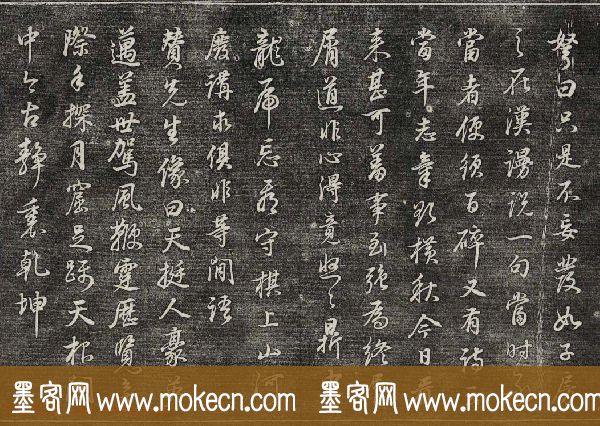 弩曰只是不妄發如子房
之在漢謾說一句當時
當者便須百碎又有詩
當年志氣欲橫秋今日看
來甚可羞事到强為終
屑道非心得竟悠悠鼎中
龍虎忘看守棋上山河
廢講求俱非等閒語
贊先生像曰天挺人豪英
邁蓋世駕風鞭霆歷覽無
際手探月窟足躡天根
中今古靜裏乾坤
墨客网 www.mokecn.com 墨客网 www.mokecn.com